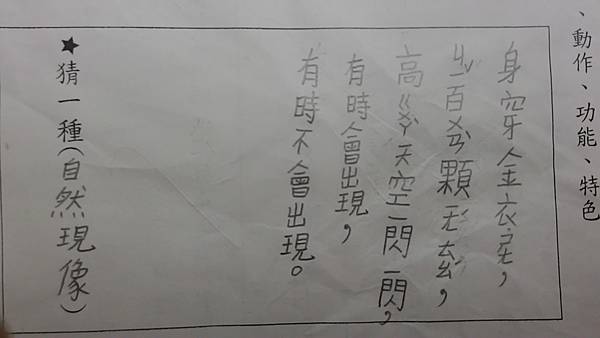 、動作、功能、特色
身穿金衣，
百顆形，
高天空一閃一閃，
有時會出現，
有時不會出現。
★猜一種(自然現像)